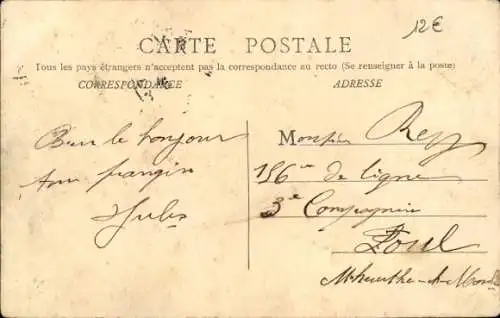 12€
CARTE POSTALE
Tous les pays étrangers n'acceptent pas la correspondance au recto (Se renseigner à la poste)
CORRESPONDANCE
ADRESSE
Bien le bonjour
ton frangin
Jules
Monsieur Rey
156me de ligne
3e Compagnie
Toul
Mthe-et-Mos